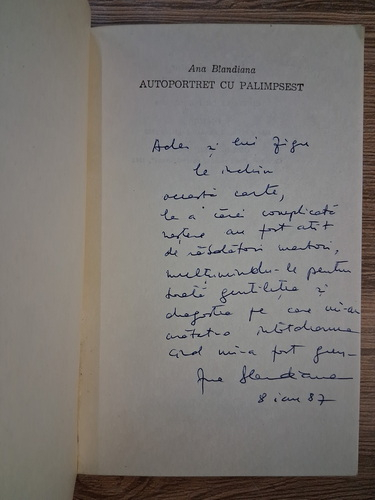 Ana Blandiana
AUTOPORTRET CU PALIMPSEST
Adei și lui Zigu
le închin
această carte,
la a cărei complicată
naștere au fost atît
de răbdători martori,
mulțumindu-le pentru
toată gentilețea și
dragostea pe care mi-au
arătat-o întotdeauna
cînd mi-a fost greu
Ana Blandiana
8 ian 87